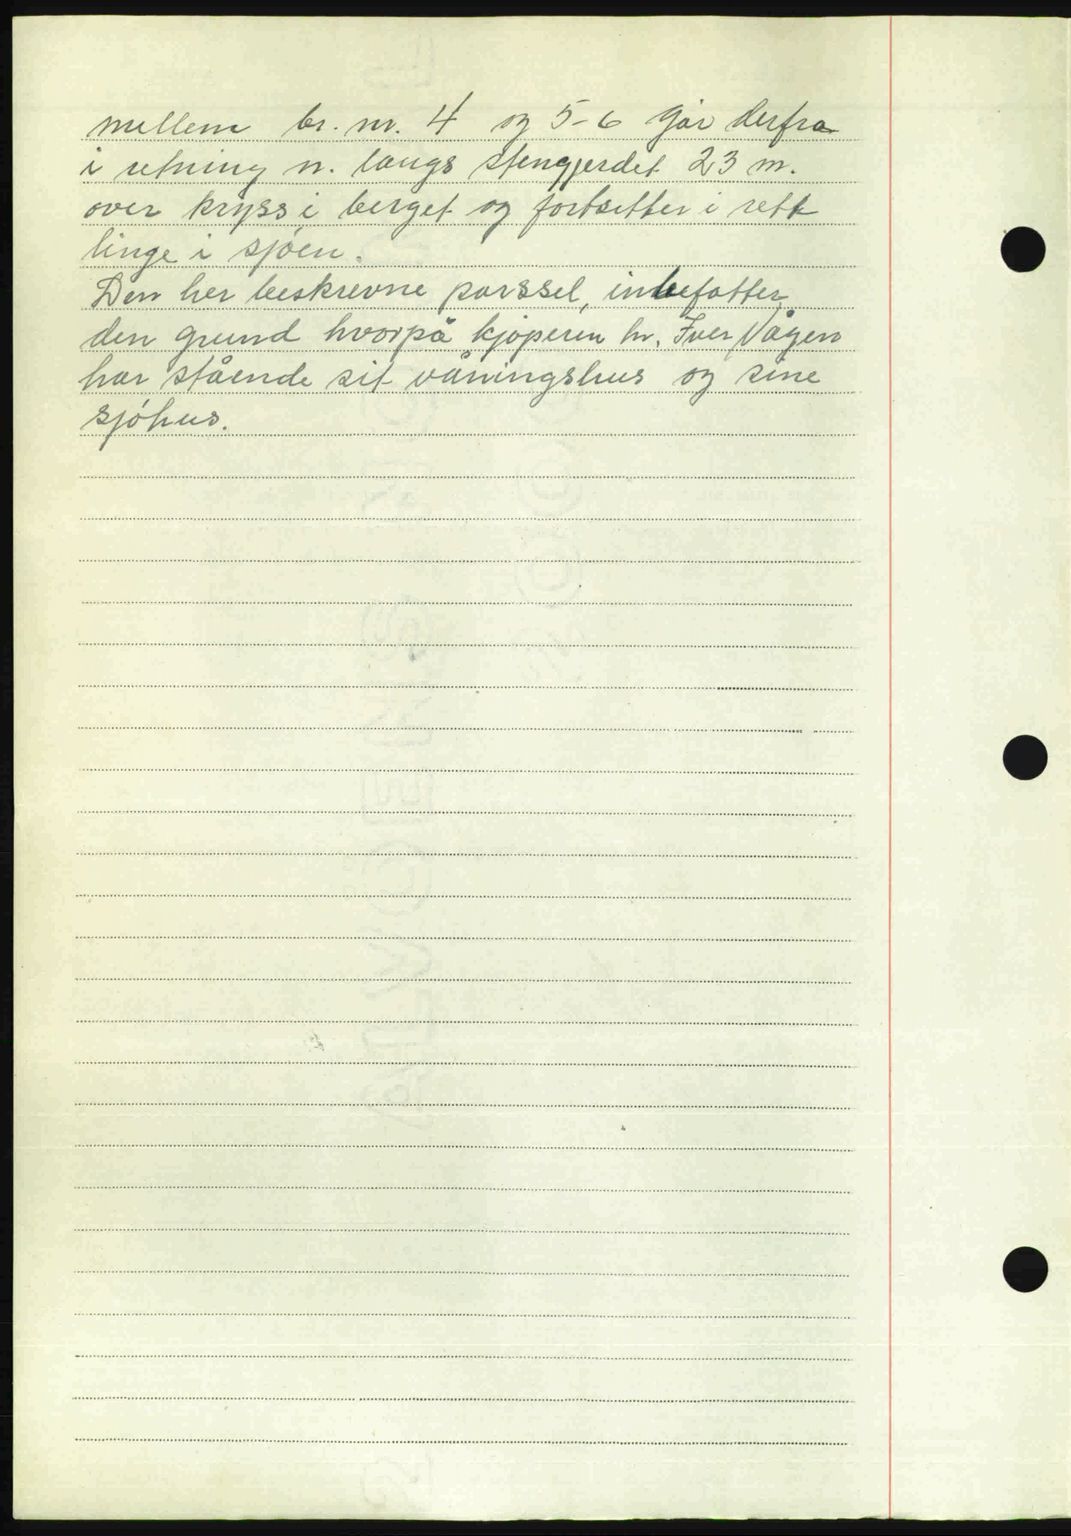 mellem br. nr. 4 og 5-6 går derfra
i retning n. langs stengjerdet 23 m.
over kryss i berget og fortsetter i rett
linge i sjøen.
Den her beskrevne parssel, inbefatter
den grund hvorpå kjøperen hr. Iver Vågen
har stående sit våningshus og sine
sjöhus.